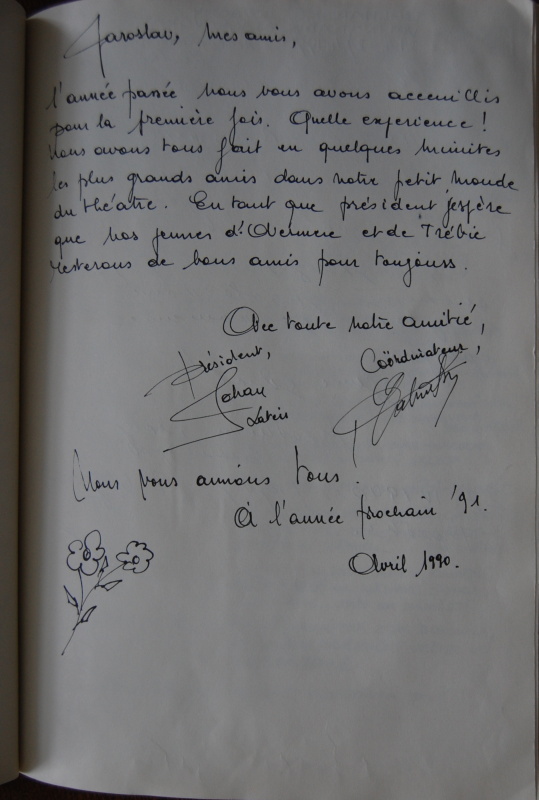 Jaroslav, mes amis,
l'année passée nous vous avons acceuillis
pour la première fois. Quelle experience!
Nous avons tous fait en quelques minutes
les plus grands amis dans notre petit monde
du théatre. En tant que président j'espère
que nos jeunes d'Overmere et de Trébic
resterons de bons amis pour toujours.
Avec toute notre amitié,
Président, Coördinateur,
Johan
Nous vous aimons tous!
A l'année prochain '91.
Avril 1990.